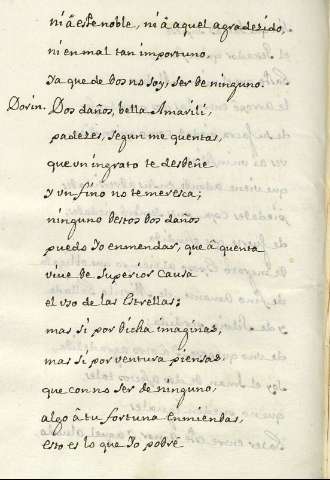 ni â este noble, ni â aquel agradezido,
ni en mal tan importuno
ya que de dos no soy, ser de ninguno.
Dorin. Dos daños, bella Amarili,
padezes, segun me quentas,
que vn ingrato te desdeñe
y vn fino no te meresca;
ninguno destos dos daños
puedo Yo enmendar, que â quenta
vive de superior causa
el vso de las Estrellas;
mas si por dicha imaginas,
mas si por ventura piensas
que con no ser de ninguno,
algo â tu fortuna enmiendas,
esto es lo que Yo podrè